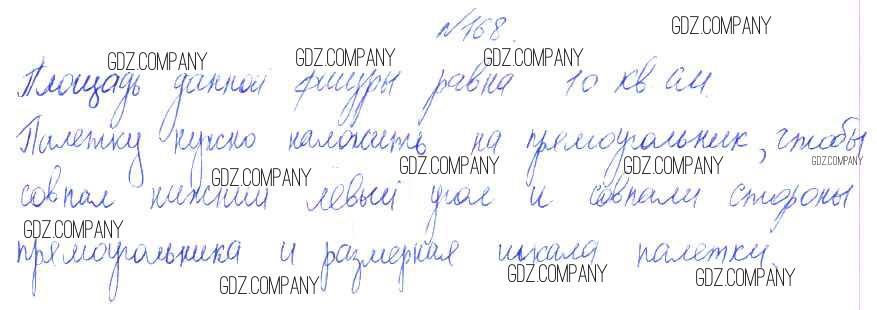 №168.
Площадь данной фигуры равна 10 кв см.
Палетку нужно наложить на прямоугольник, чтобы
совпал нижний левый угол и совпали стороны
прямоугольника и размерная шкала палетки.
GDZ.COMPANY
GDZ.COMPANY
GDZ.COMPANY
GDZ.COMPANY
GDZ.COMPANY
GDZ.COMPANY
GDZ.COMPANY
GDZ.COMPANY
GDZ.COMPANY
GDZ.COMPANY
GDZ.COMPANY
GDZ.COMPANY
GDZ.COMPANY